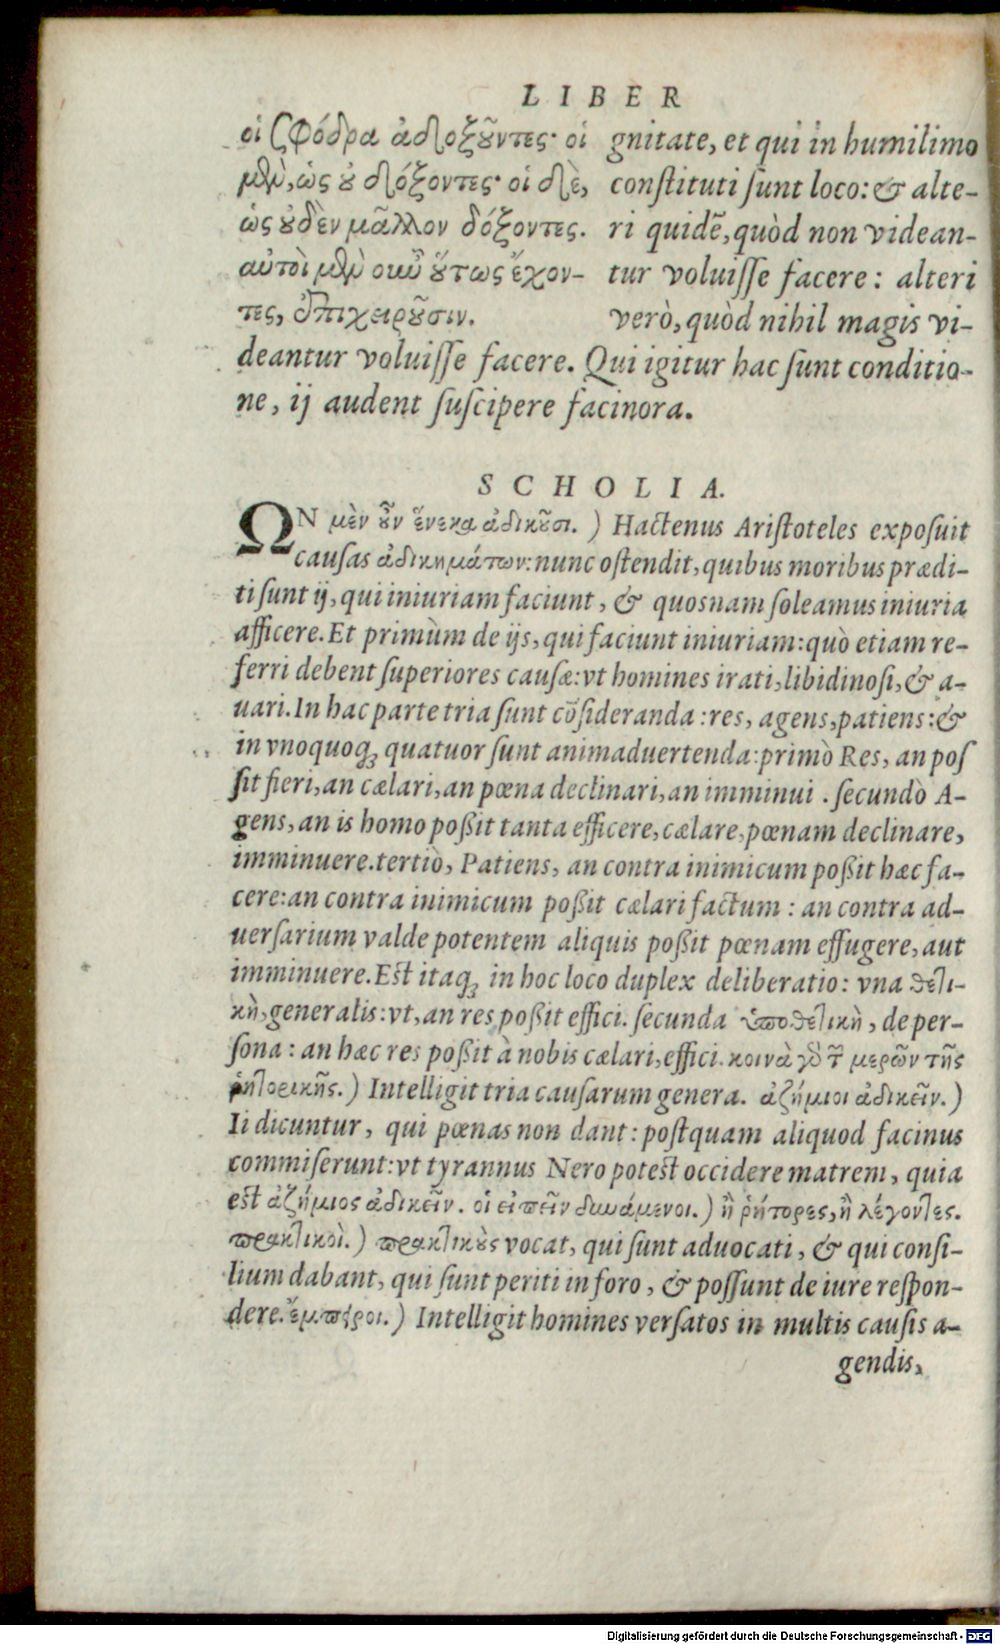 LIBER
οἱ σφόδρα ἀδοξοῦντες· οἱ
μὲν, ὡς οὐ δόξοντες· οἱ δὲ,
ὡς οὐδὲν μᾶλλον δόξοντες.
αὐτοὶ μὲν οὖν οὕτως ἔχον-
τες, ἐπιχειροῦσιν.
gnitate, et qui in humilimo
conſtituti ſunt loco: & alte-
ri quidē, quòd non videan-
tur voluiſſe facere: alteri
verò, quòd nihil magis vi-
deantur voluiſſe facere. Qui igitur hac ſunt conditio-
ne, ij audent ſuſcipere facinora.
SCHOLIA.
ΩΝ μὲν οὖν ἕνεκα ἀδικοῦσι. ) Hactenus Ariſtoteles expoſuit
cauſas ἀδικημάτων: nunc oſtendit, quibus moribus prædi-
ti ſunt ij, qui iniuriam faciunt, & quosnam ſoleamus iniuria
afficere. Et primùm de ijs, qui faciunt iniuriam: quò etiam re-
ferri debent ſuperiores cauſæ: vt homines irati, libidinoſi, & a-
uari. In hac parte tria ſunt cōſideranda: res, agens, patiens: &
in vnoquoq; quatuor ſunt animaduertenda: primò Res, an poſ
ſit fieri, an cælari, an pœna declinari, an imminui. ſecundò A-
gens, an is homo poßit tanta efficere, cælare, pœnam declinare,
imminuere. tertiò, Patiens, an contra inimicum poßit hæc fa-
cere: an contra inimicum poßit cælari factum: an contra ad-
uerſarium valde potentem aliquis poßit pœnam effugere, aut
imminuere. Eſt itaq; in hoc loco duplex deliberatio: vna θετι-
κὴ, generalis: vt, an res poßit effici. ſecunda ὑποθετικὴ, de per-
ſona: an hæc res poßit à nobis cælari, effici. κοινὰ γὸ τῶ μερῶν τῆς
ῥητορικῆς.) Intelligit tria cauſarum genera. ἀζήμιοι ἀδικεῖν.)
Ii dicuntur, qui pœnas non dant: poſtquam aliquod facinus
commiſerunt: vt tyrannus Nero poteſt occidere matrem, quia
eſt ἀζήμιος ἀδικεῖν. οἱ εἰπεῖν δυνάμενοι.) ἢ ῥήτορες, ἢ λέγοντες.
πρακτικοὶ.) πρακτικοὺς vocat, qui ſunt aduocati, & qui conſi-
lium dabant, qui ſunt periti in foro, & poſſunt de iure reſpon-
dere. ἔμπειροι.) Intelligit homines verſatos in multis cauſis a-
gendis,
Digitalisierung gefördert durch die Deutsche Forschungsgemeinschaft - DFG